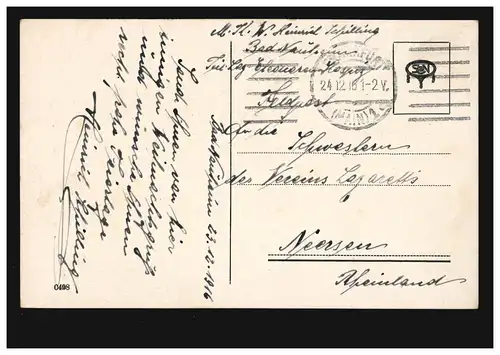 M. Kl. W. Heinrich Schilling
Bad Nauheim
Feldpost
24.12.16 1-2V.
An die
Schwestern
des Vereins Lazaretts
Neersen
Rheinland
Bad Nauheim 23.12.1916
Ihnen von hier
einen Weihnachtsgruß
und wünsche Ihnen
recht frohe Feiertage
Heinrich Schilling
0498